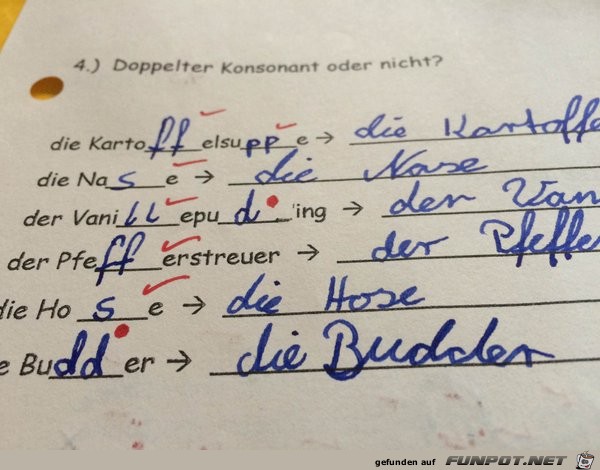 4.) Doppelter Konsonant oder nicht?
die Kartoffelsuppe → die Kartoffe
die Nase → die Nase
der Vanillepuding → der Van
der Pfefferstreuer → der Pfeffe
die Hose → die Hose
e Budder → die Budder
gefunden auf FUNPOT.NET